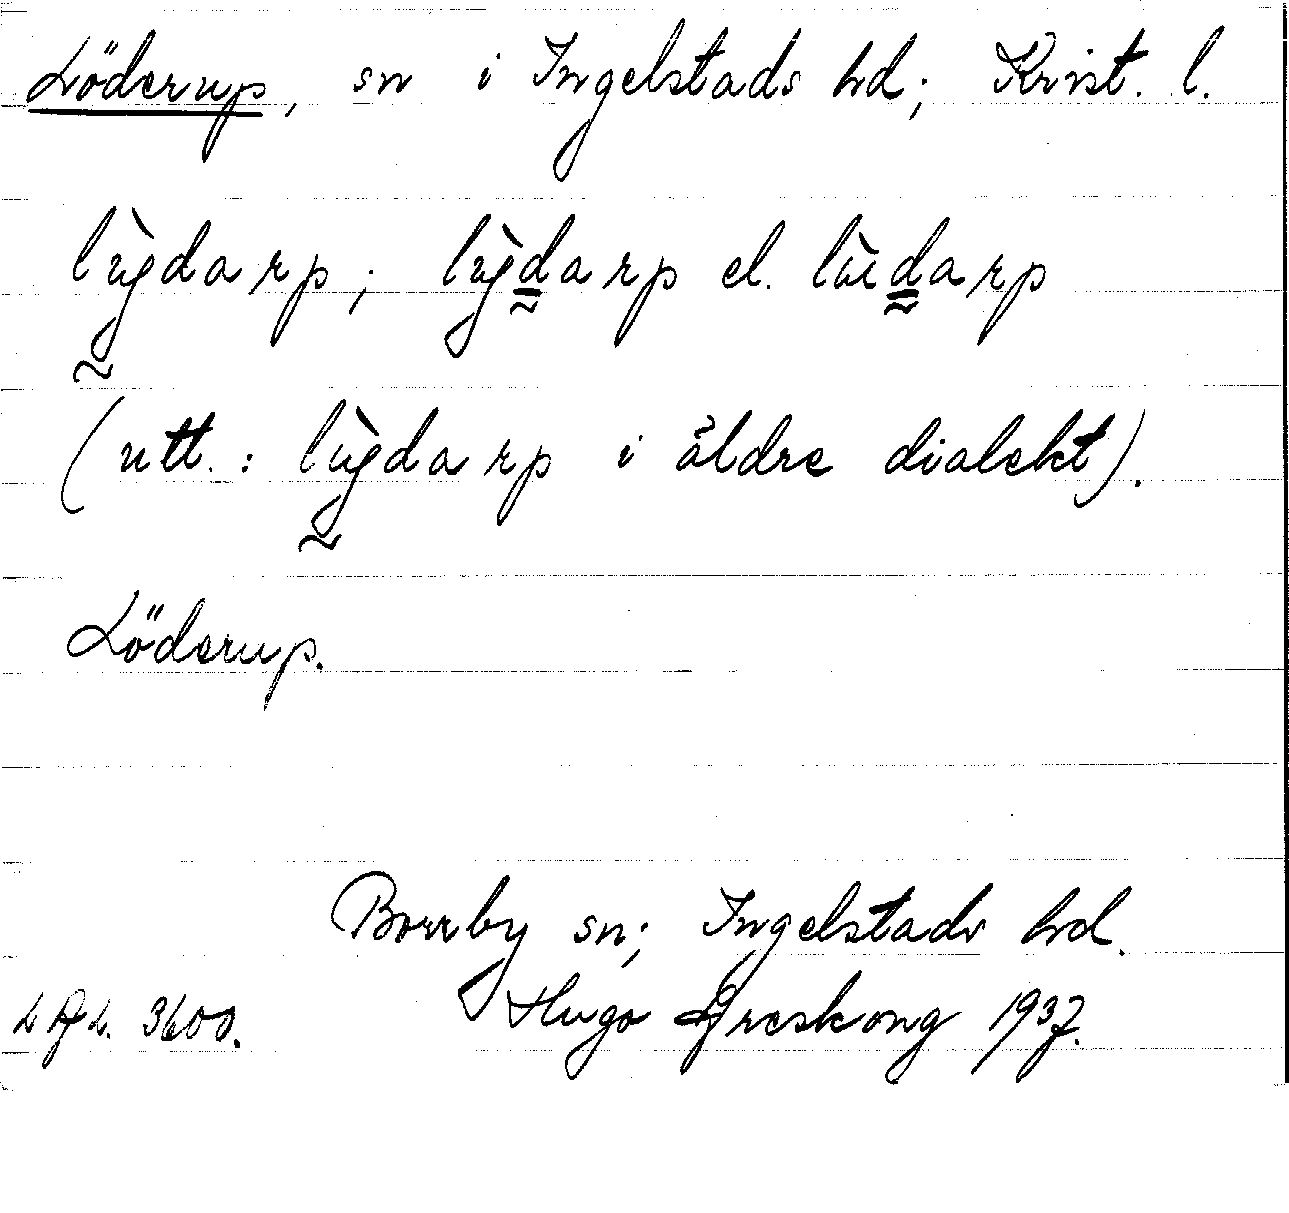 Löderup, sn i Ingelstads hd; Krist. l.
lùgdarp; lùgdarp el. lùdarp
(utt.: lùgdarp i äldre dialekt).
Löderup.
Borrby sn; Ingelstads hd.
3600. Hugo Areskoug 1937.